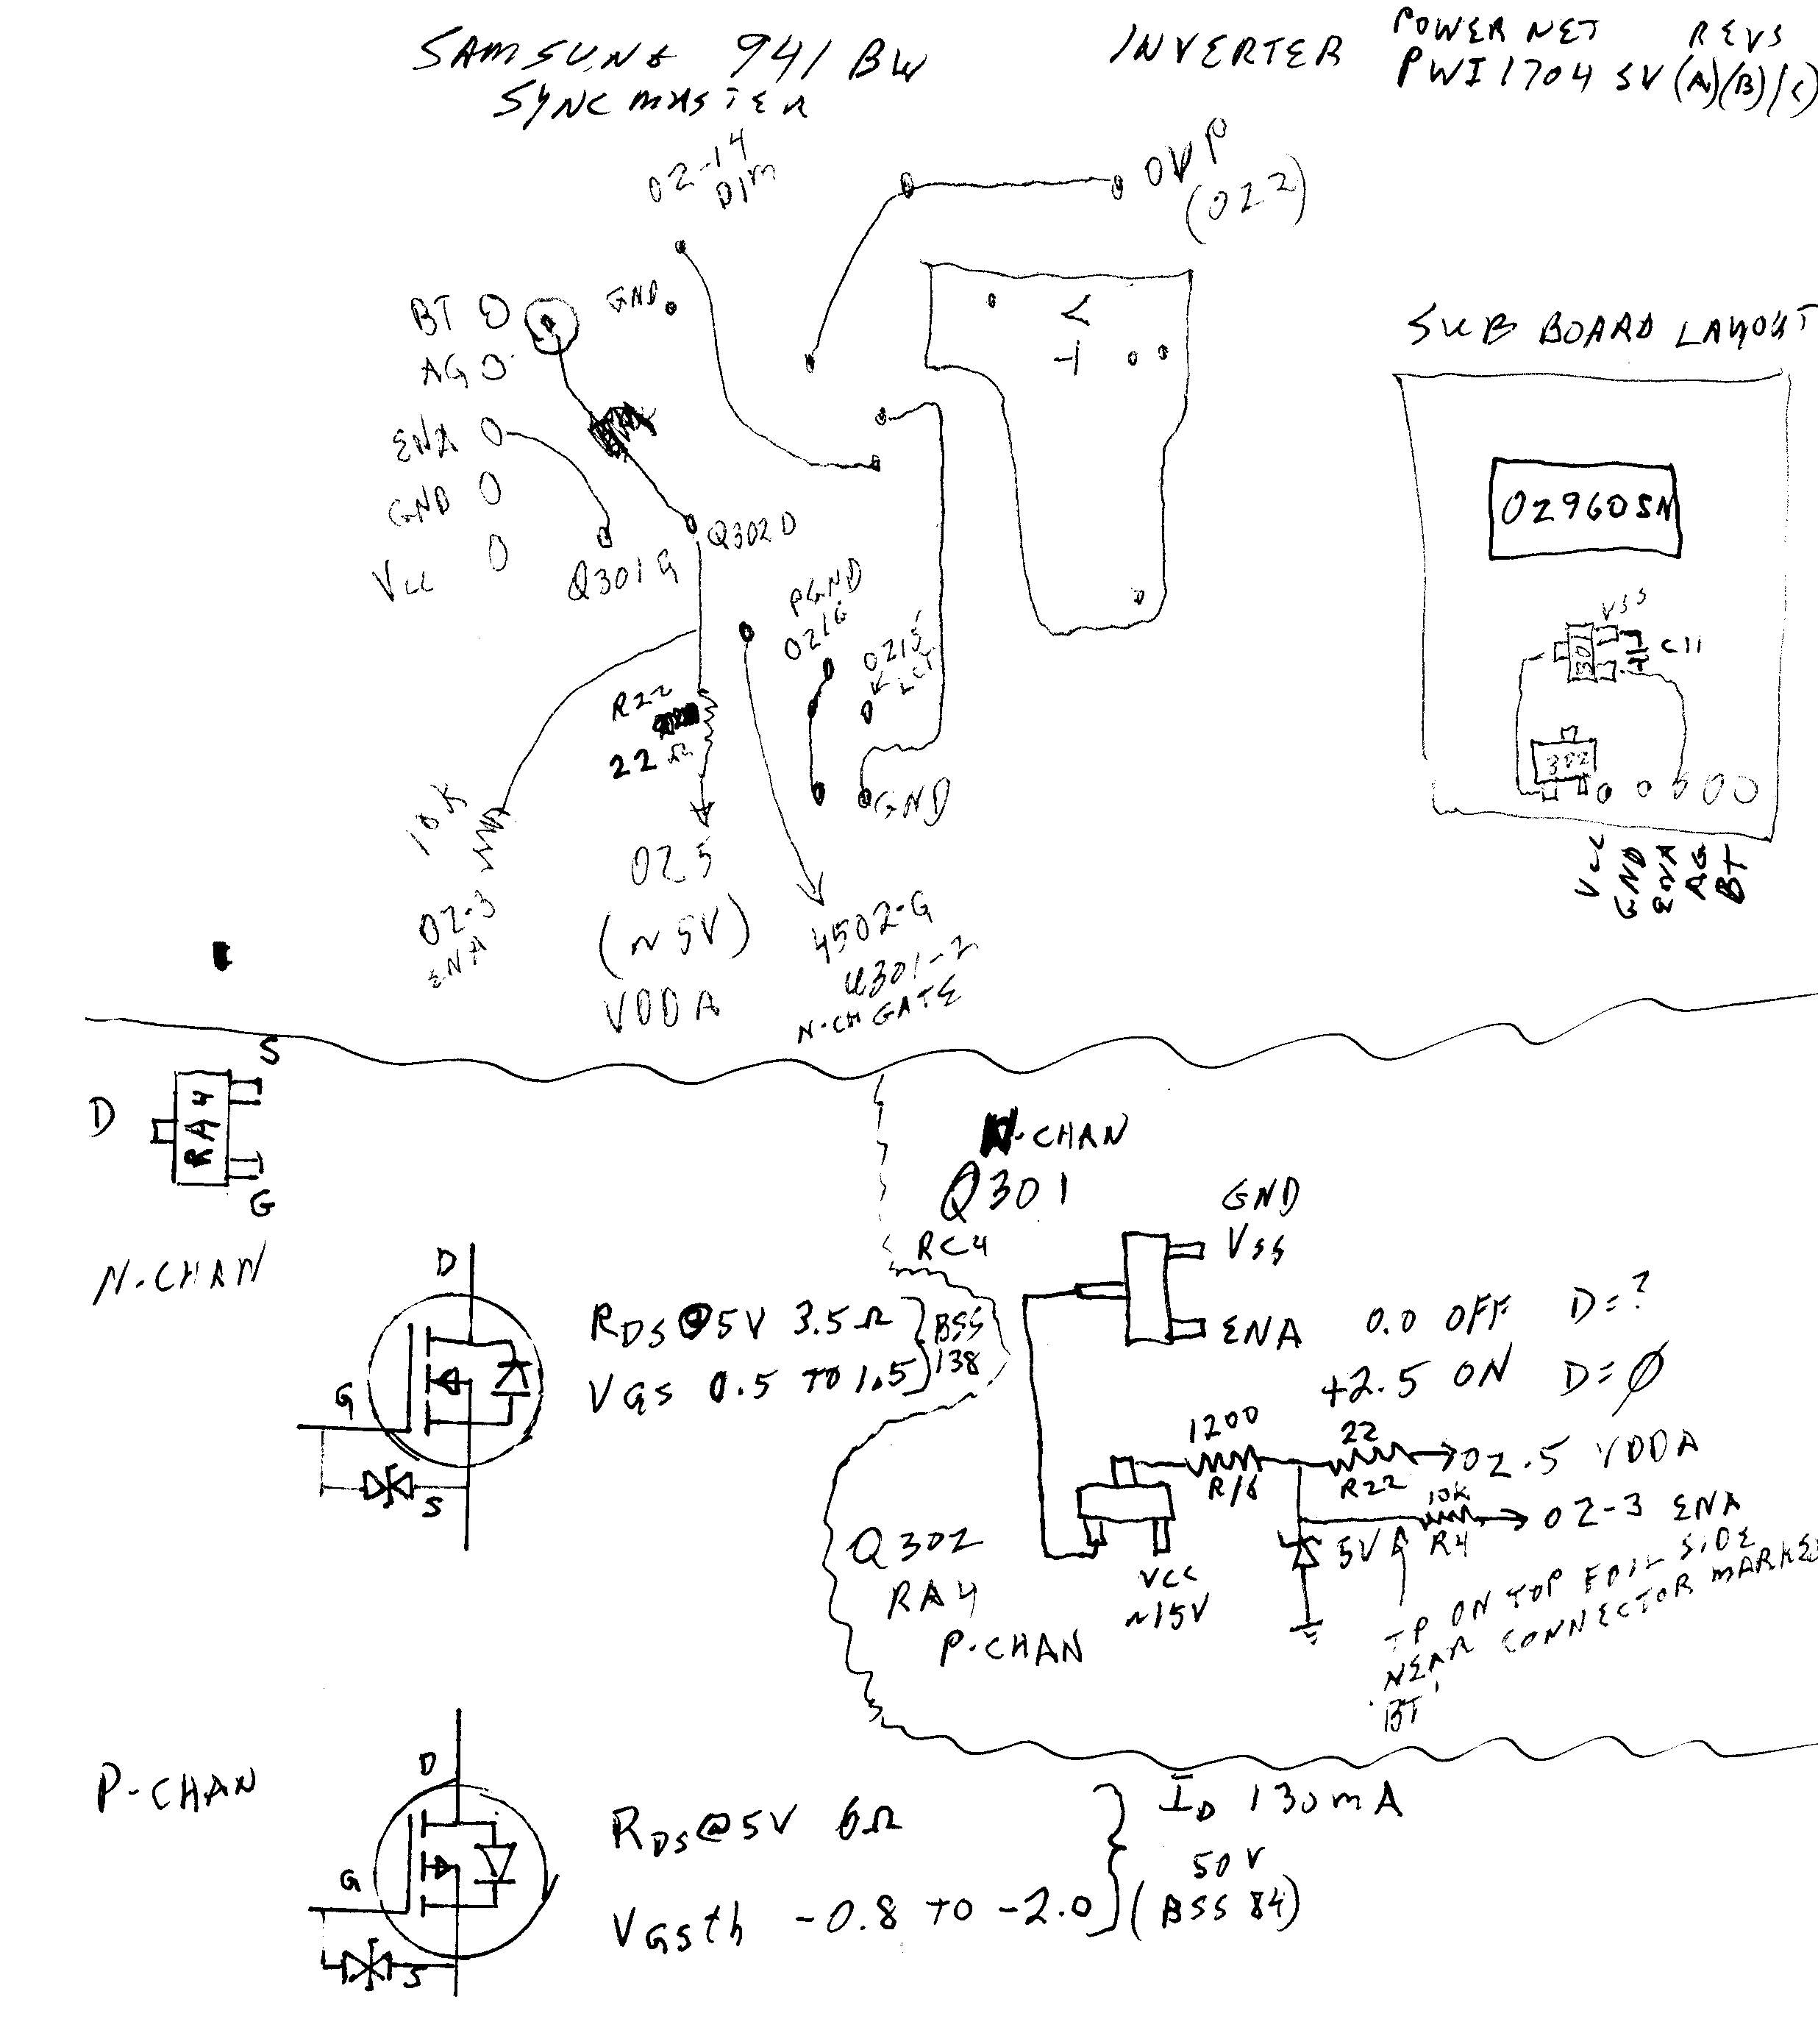 SAMSUNG 941 BW
SYNCMASTER
INVERTER
POWER NET REVS
PWI1704 SV (A)(B)/(C)
02-14
DIM
OVP
(022)
BT
GND
AG
ENA
GND
VCC
Q301G
Q302D
SUB BOARD LAYOUT
OZ960SN
VSS
301
C11
302
VCC
GND
ENA
AG
BT
PGND
OZ16
OZ15
LCT
R22
22 Ω
GND
10K
OZ-3
ENA
OZ5
(~5V)
VDDA
4502-G
U301-2
N-CH GATE
D
S
RA4
G
N-CHAN
D
G
S
RDS@5V 3.5Ω
VGS 0.5 TO 1.5
BSS
138
N-CHAN
Q301
RC4
GND
VSS
ENA
0.0 OFF D=?
+2.5 ON D=Ø
1200
R18
22
R22
OZ.5 VDDA
10K
R4
OZ-3 ENA
5VA
Q302
RA4
P-CHAN
VCC
~15V
TP ON TOP FOIL SIDE
NEAR CONNECTOR MARKED
'BT'
P-CHAN
D
G
S
RDS@5V 6Ω
VGSth -0.8 TO -2.0
ID 130mA
50V
(BSS 84)